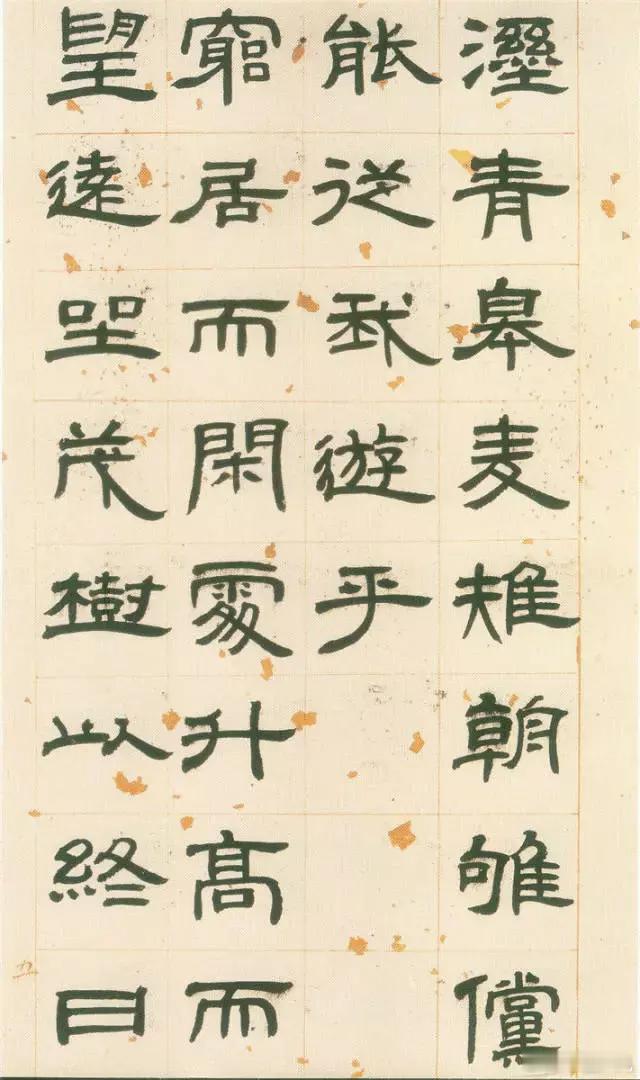 溼青皋麦雉朝雊儻
能從我遊乎
窮居而閑處升髙而
望遠坐茂樹以終日